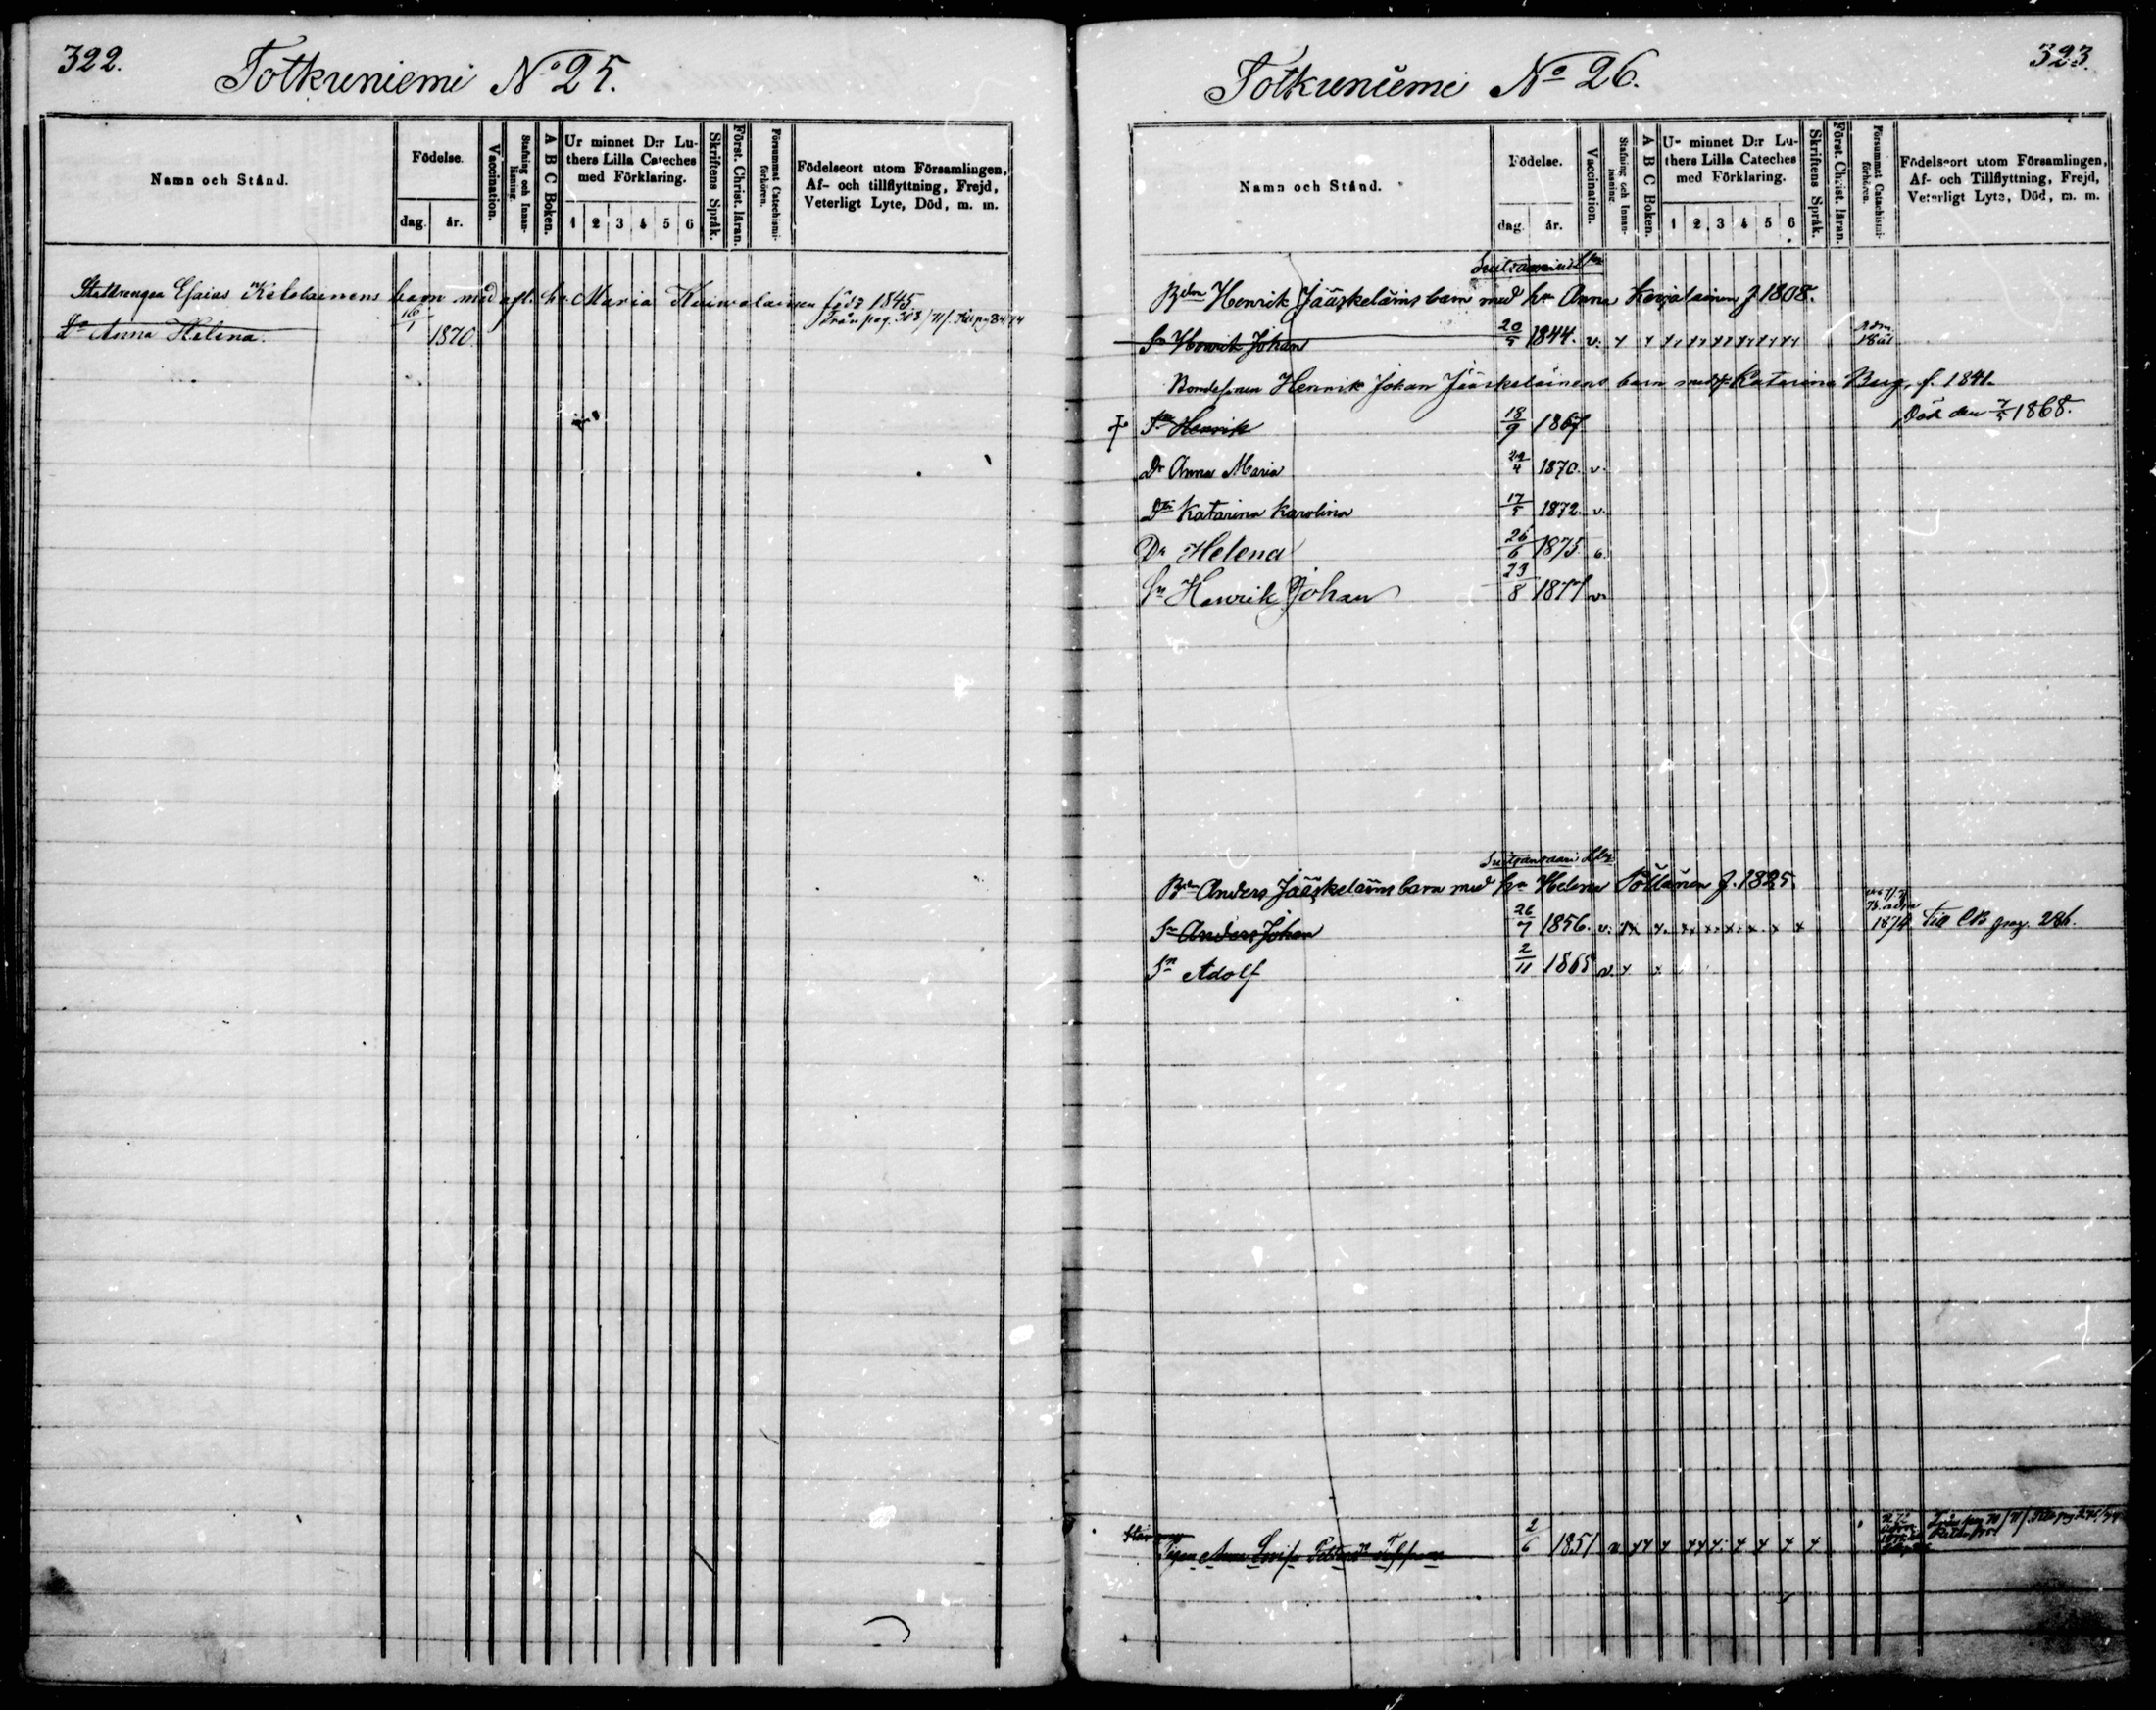 322.
Totkuniemi No 25.
Namn och Stånd.
Födelse.
dag. år.
Vaccination.
Stafning och Innan-läsning.
A B C Boken.
Ur minnet D:r Lu-
thers Lilla Cateches
med Förklaring.
1 2 3 4 5 6
Skriftens Språk.
Först. Christ. läran.
Försummat Catechismi-förhören.
Födelseort utom Församlingen,
Af- och tillflyttning, Frejd,
Veterligt Lyte, Död, m. m.
Esaias barn med hu Maria född 1845.
Dr Anna Helena. 16/1 1870.
323.
Totkuniemi No 26.
Namn och Stånd.
Födelse.
dag. år.
Vaccination.
Stafning och Innan-läsning.
A B C Boken.
Ur minnet D:r Lu-
thers Lilla Cateches
med Förklaring.
1 2 3 4 5 6
Skriftens Språk.
Först. Christ. läran.
Försummat Catechismi-förhören.
Födelseort utom Församlingen,
Af- och Tillflyttning, Frejd,
Veterligt Lyte, Död, m. m.
Bdn Henrik Jääskeläins barn med hu Anna f. 1808.
Sn Henrik Johan 20/5 1844. v.
Bondesonen Henrik Johan Jääskeläinens barn med Katarina f. 1841.
Sn Henrik 18/9 1867 Död den 7/5 1868.
Dr Anna Maria 1870. v.
Dtr Katarina Karolina 17/5 1872. v.
Dr Helena 26/6 1875
Sn Henrik Johan 23/8 1877 v.
Bdn Anders Jääskeläins barn med hu Helena Pöllänen f. 1825.
Sn Anders Johan 26/7 1856. v. 1874 Till CB pag. 286.
Sn Adolf 2/11 1865 v.
Pigan Anna Lovisa 2/6 1851